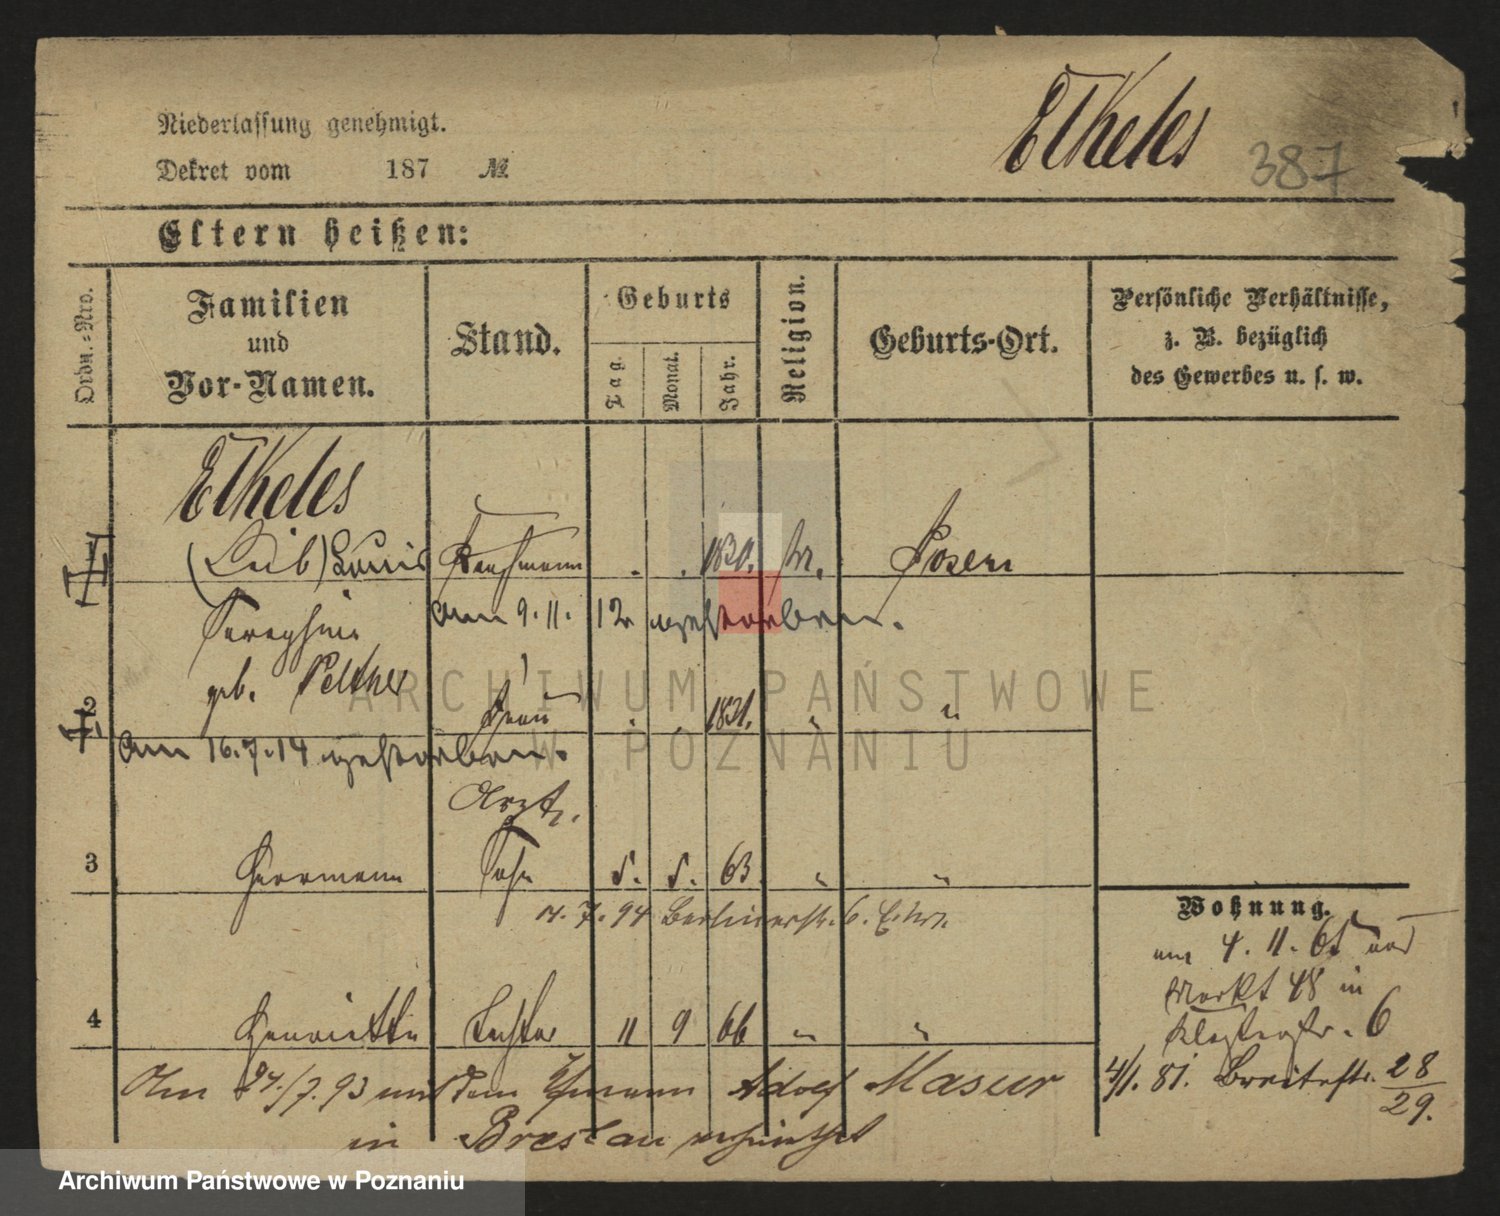 Niederlassung genehmigt.
Dekret vom 187 №
Elkeles
387
Eltern heißen:
Ordn.-Nro.
Familien
und
Vor-Namen.
Stand.
Geburts
Tag.
Monat.
Jahr.
Religion.
Geburts-Ort.
Persönliche Verhältnisse,
z. B. bezüglich
des Gewerbes u. s. w.
Elkeles
1 (Leib) Louis Kaufmann 1820. M. Posen
am 9. 11. 12 gestorben.
geb.
2 Frau 1831. " "
am 16. 7. 14 gestorben.
Arzt.
3 Herrmann Sohn 5. 5. 63. " "
7. 94 Berlinerstr. 6.
Wohnung.
4. 11. 65
Markt 48 in
Klosterstr. 6
4 Henriette Tochter 11 9 66 " "
Am 24./7. 93 mit dem Adolf Masur
in Breslau verheirathet
4/1. 81. Breitestr. 28/29.
ARCHIWUM PAŃSTWOWE
W POZNANIU
Archiwum Państwowe w Poznaniu